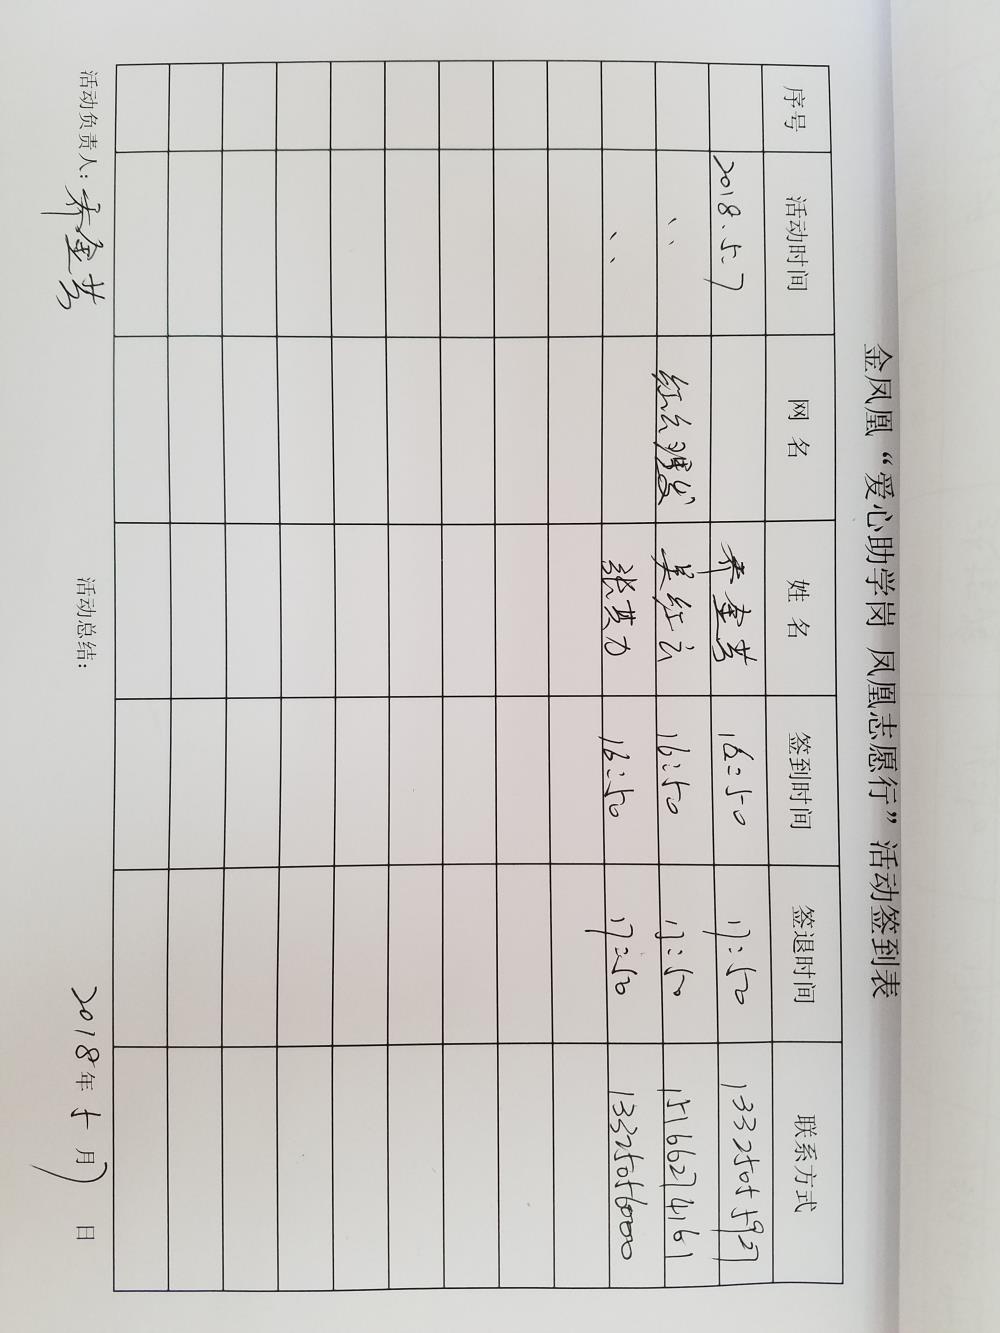 金凤凰“爱心助学岗 凤凰志愿行”活动签到表
序号 活动时间 网 名 姓 名 签到时间 签退时间 联系方式
2018.5.7 乔金芳 16:50 17:50 13325055927
〃 红云 吴红云 16:50 17:50 15166274161
〃 张其力 16:50 17:50 13325056000
活动负责人: 乔金芳 活动总结: 2018年5月7日